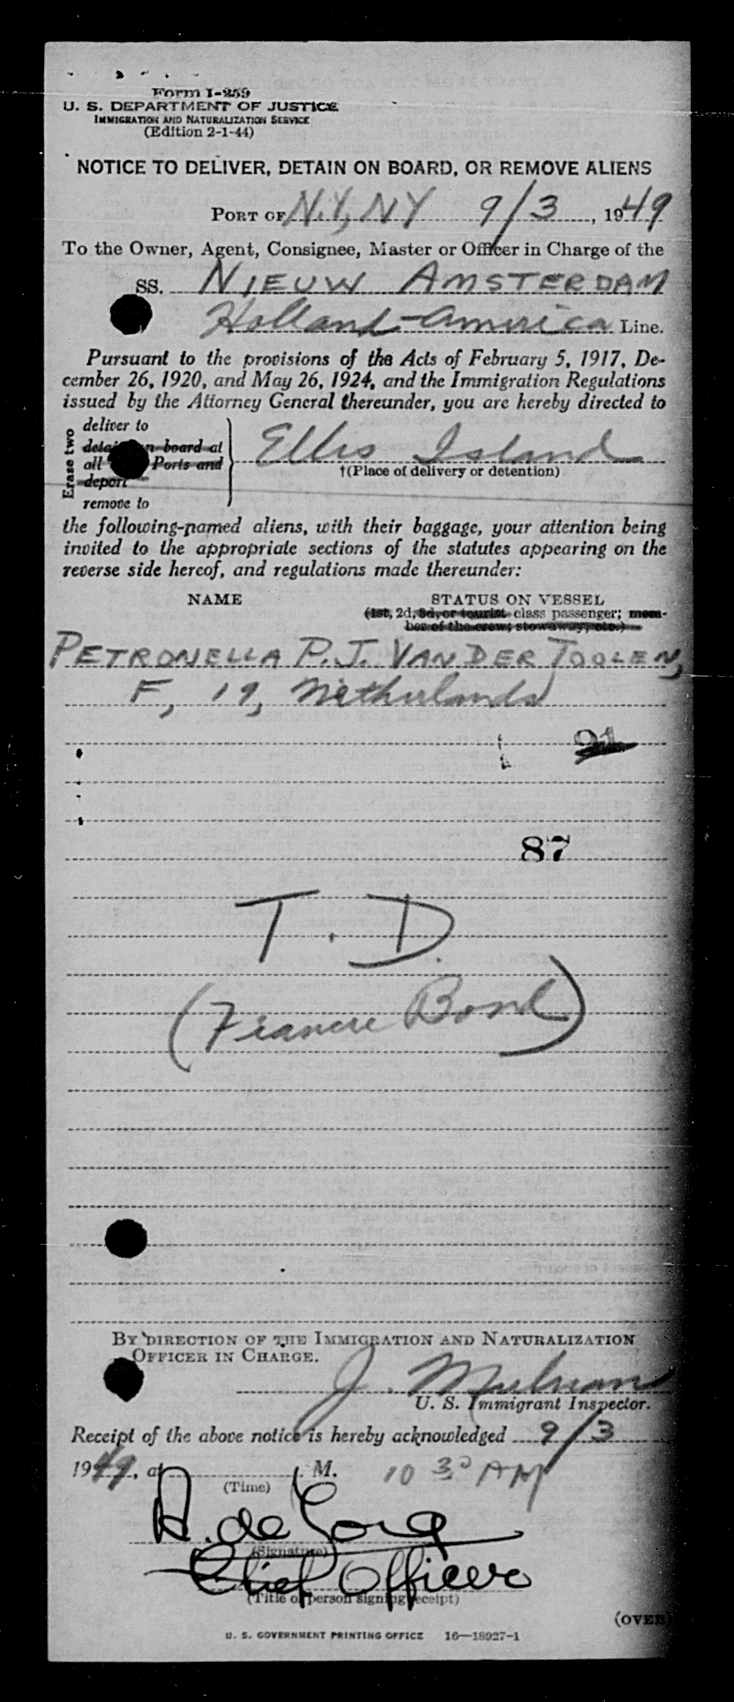 Form I-259
U. S. DEPARTMENT OF JUSTICE
IMMIGRATION AND NATURALIZATION SERVICE
(Edition 2-1-44)
NOTICE TO DELIVER, DETAIN ON BOARD, OR REMOVE ALIENS
PORT OF N.Y., NY 9/3, 1949
To the Owner, Agent, Consignee, Master or Officer in Charge of the
SS. NIEUW AMSTERDAM
Holland-America Line.
Pursuant to the provisions of the Acts of February 5, 1917, De-
cember 26, 1920, and May 26, 1924, and the Immigration Regulations
issued by the Attorney General thereunder, you are hereby directed to
Erase two
deliver to
detain on board at
all Ports and
deport
remove to
Ellis Island
†(Place of delivery or detention)
the following-named aliens, with their baggage, your attention being
invited to the appropriate sections of the statutes appearing on the
reverse side hereof, and regulations made thereunder:
NAME STATUS ON VESSEL
(1st, 2d, 3d, or tourist class passenger; mem-
ber of the crew; stowaway, etc.)
PETRONELLA P. J. VAN DER TOOLEN,
F, 19, Netherlands
91
87
T. D.
( Bond)
BY DIRECTION OF THE IMMIGRATION AND NATURALIZATION
OFFICER IN CHARGE.
J.
U. S. Immigrant Inspector.
Receipt of the above notice is hereby acknowledged 9/3
1949, at M. 10 30 AM
(Time)
A. de
(Signature)
Chief Officer
(Title of person signing receipt)
(OVER)
U. S. GOVERNMENT PRINTING OFFICE 16—18927-1